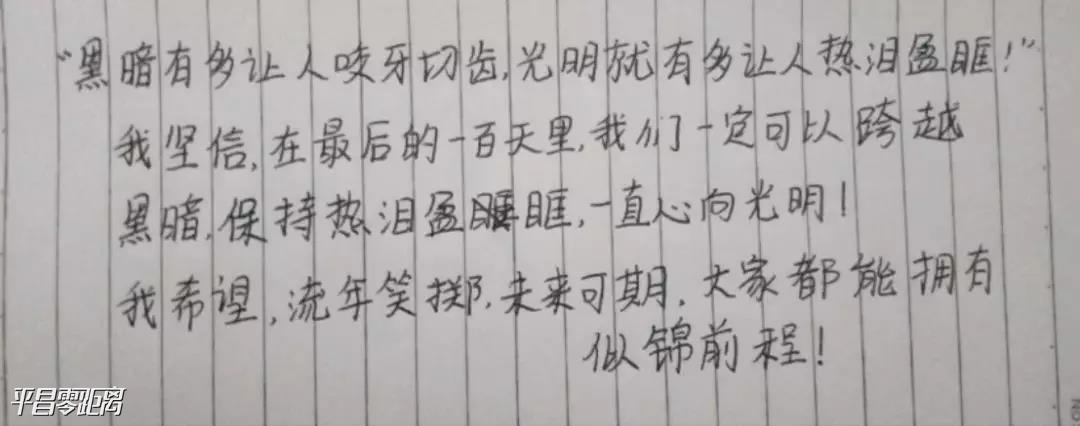 “黑暗有多让人咬牙切齿,光明就有多让人热泪盈眶!”
我坚信,在最后的一百天里,我们一定可以跨越
黑暗,保持热泪盈眶,一直心向光明!
我希望,流年笑掷,未来可期,大家都能拥有
似锦前程!
平昌零距离